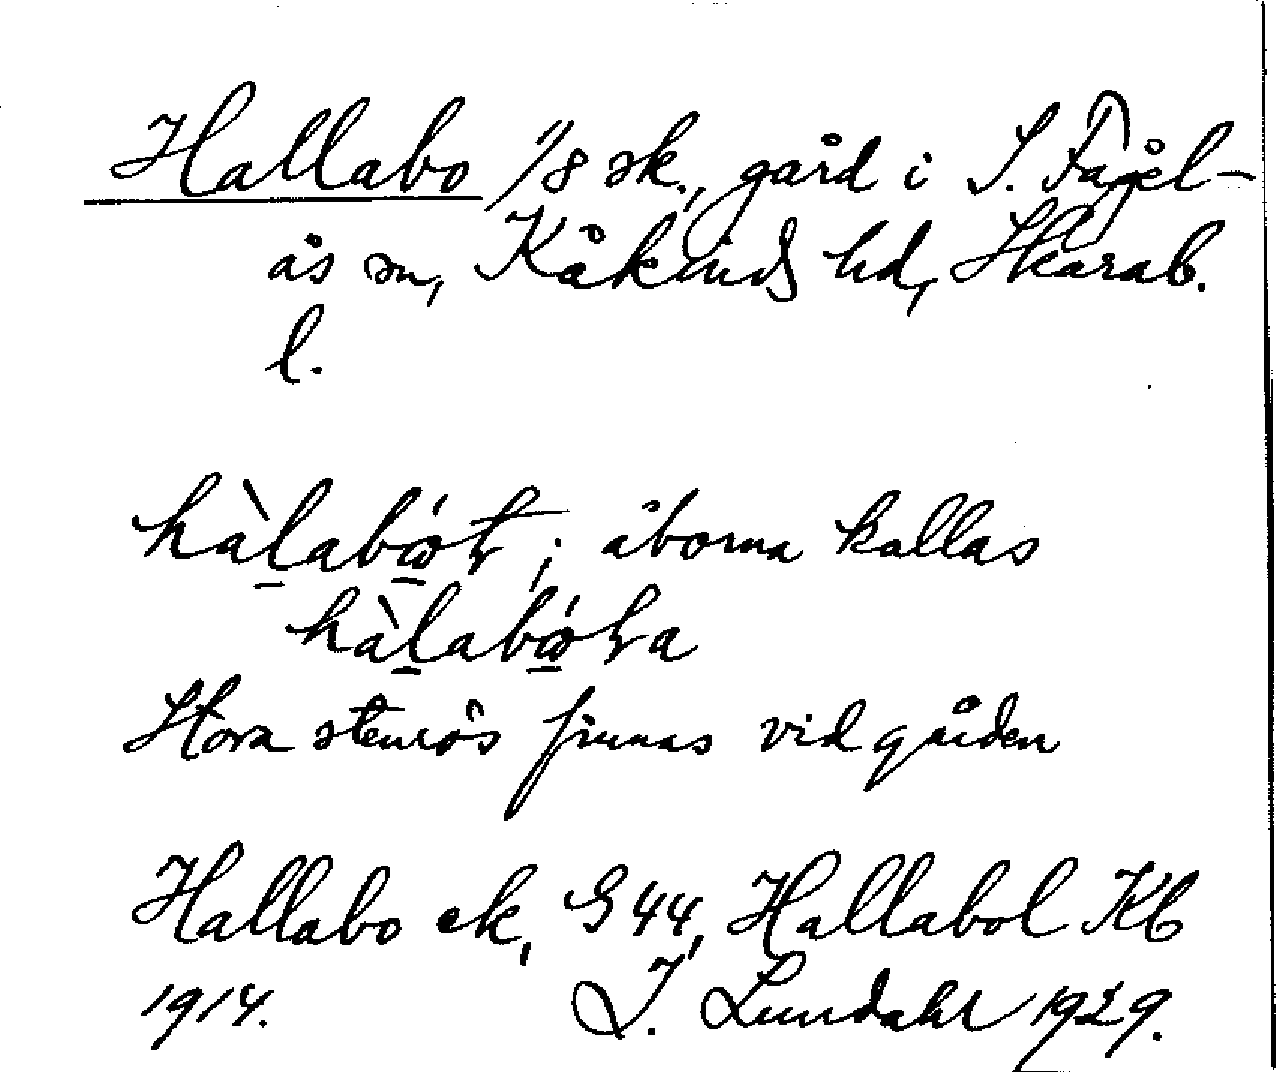 Hallabo 1/8 sk., gård i S. Fågel-
ås sn, Kåkinds hd, Skarab.
l.
åborna kallas
Stora stenrös finnas vid gården
Hallabo ek, G 44, Hallabol Kb
1914. I. Lundahl 1929.